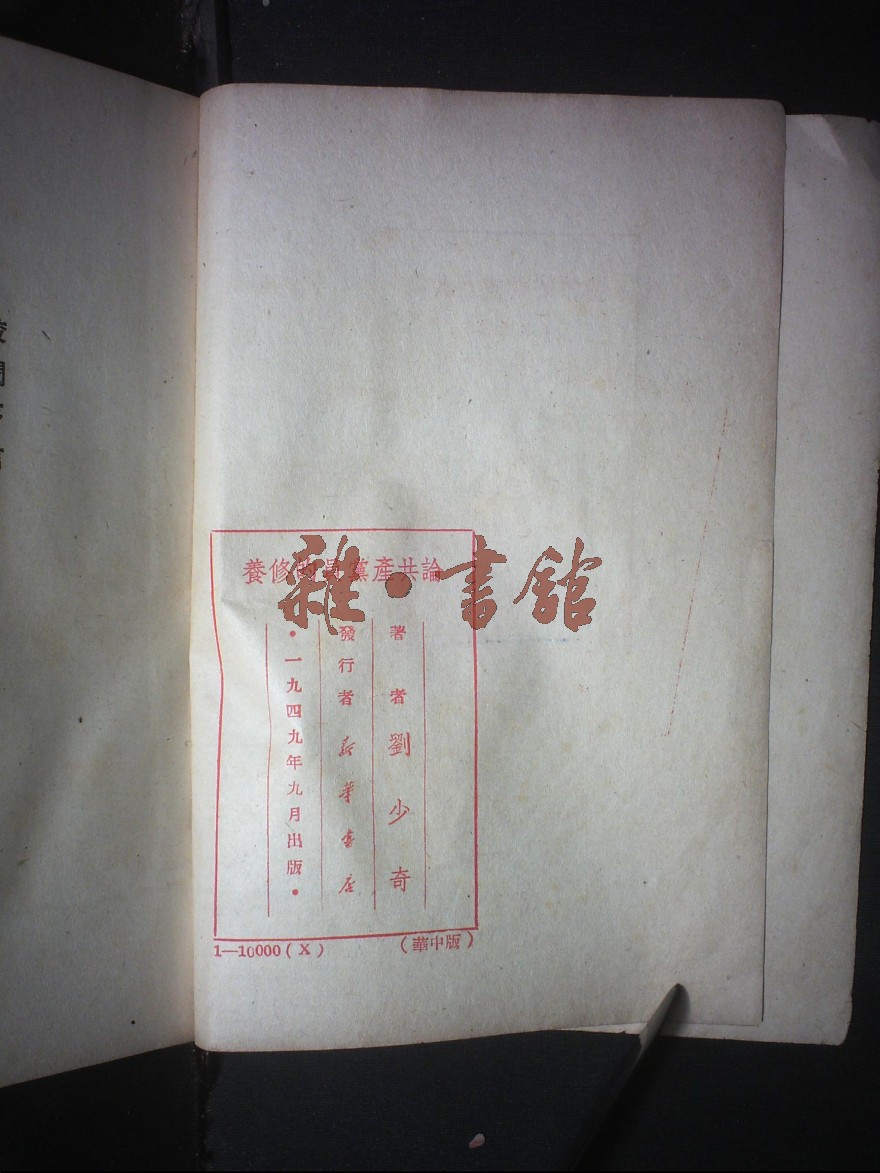 論共產黨員的修養
著者 劉少奇
發行者 新華書店
•一九四九年九月出版•
1—10000(X)
(華中版)
雜•書館